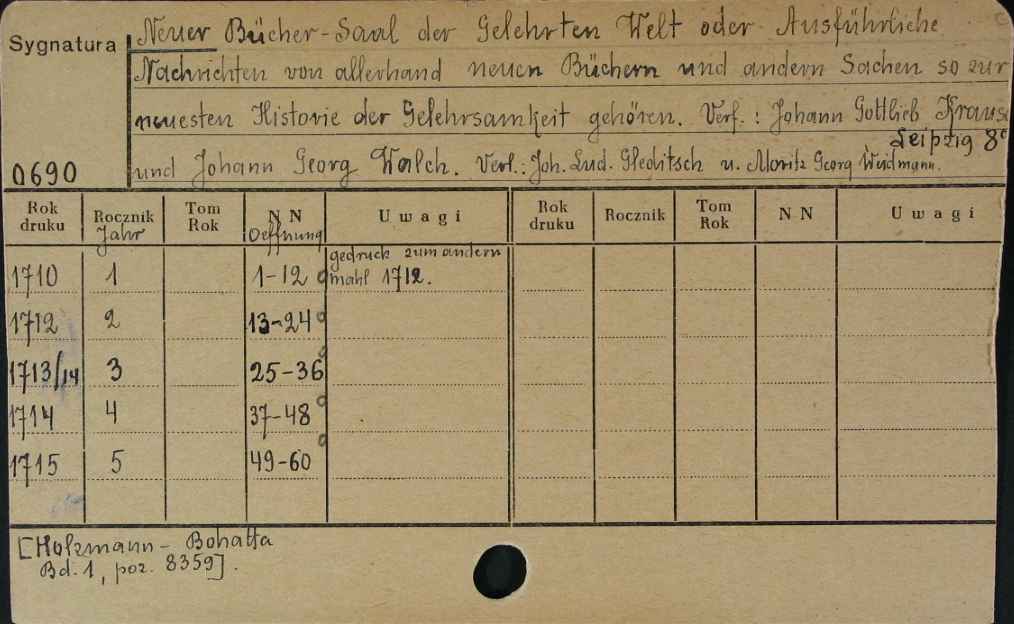 Sygnatura
Neuer Bücher-Saal der Gelehrten Welt oder Ausführliche
Nachrichten von allerhand neuen Büchern und andern Sachen so zur
neuesten Historie der Gelehrsamkeit gehören. Verf.: Johann Gottlieb Krause
Leipzig 8°
0690
und Johann Georg Walch. Verl.: Joh. Lud. Gleditsch u. Moritz Georg Weidmann.
Rok druku Rocznik Jahr Tom Rok N N Oeffnung Uwagi Rok druku Rocznik Tom Rok N N Uwagi
1710 1 1-12 gedruck zum andern
mahl 1712.
1712 2 13-24
1713/14 3 25-36
1714 4 37-48
1715 5 49-60
[Holzmann - Bohatta
Bd. 1, poz. 8359].